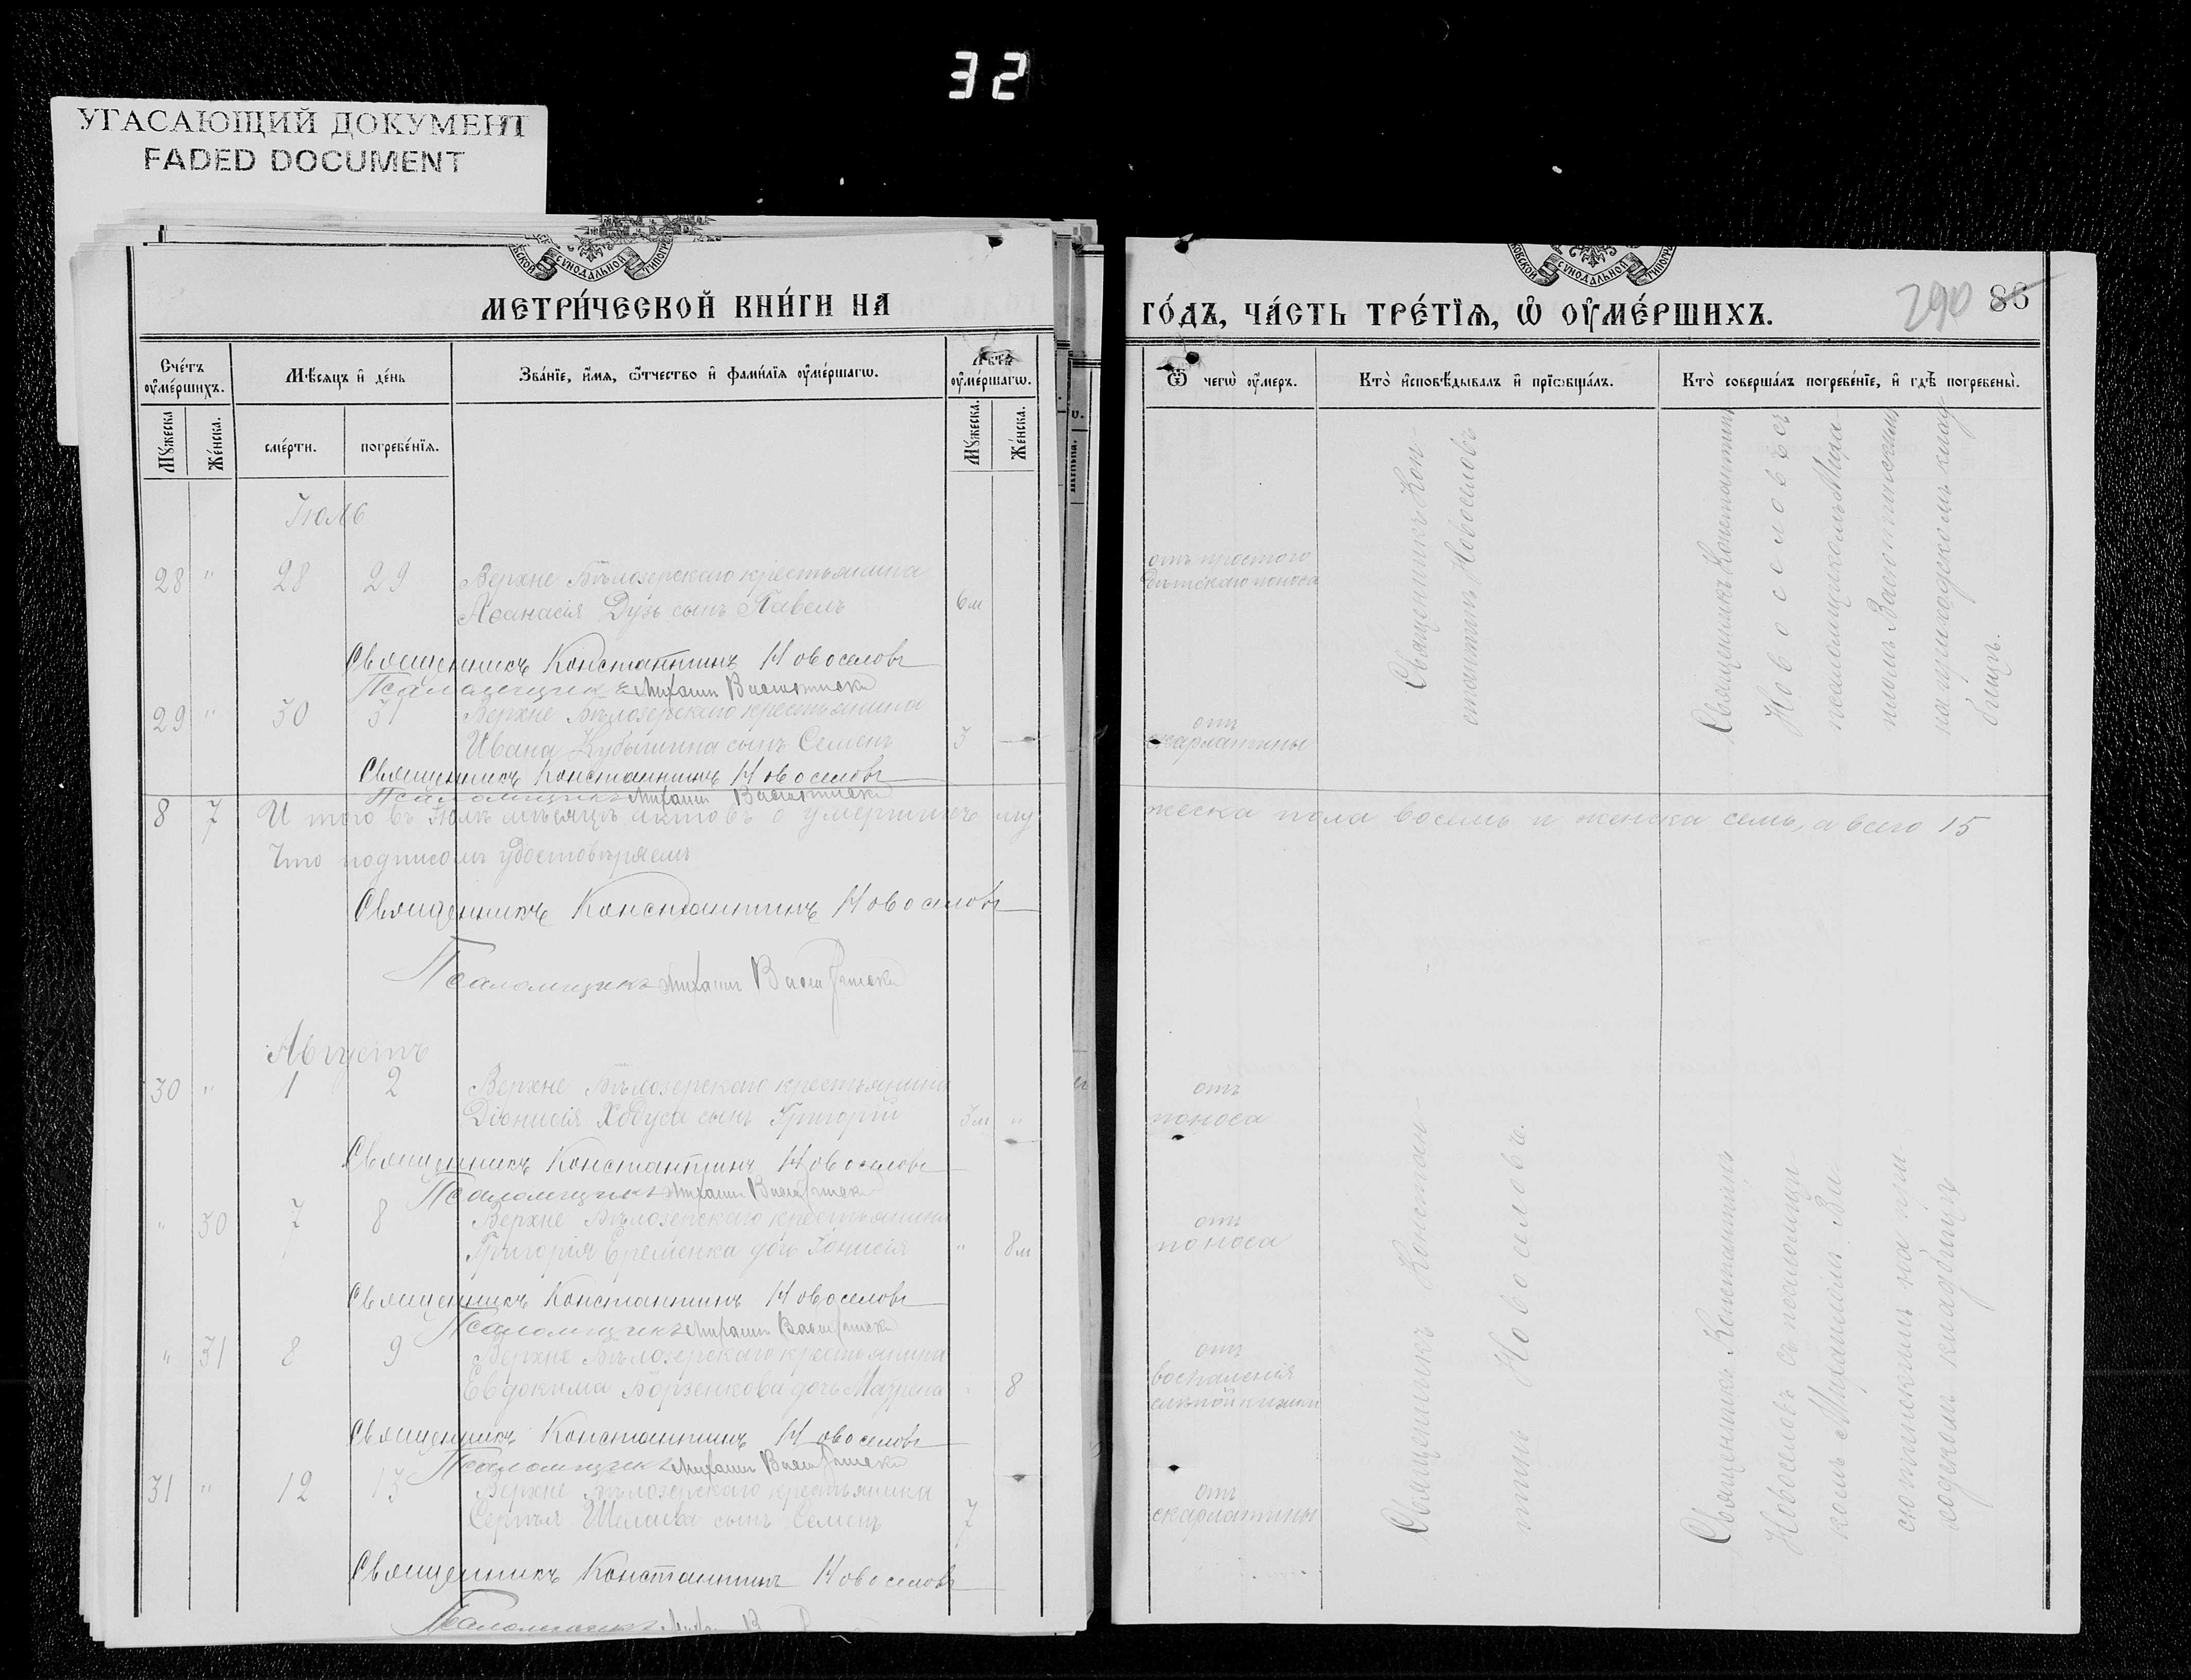 32
УГАСАЮЩИЙ ДОКУМЕНТ
FADED DOCUMENT
СѴНОДАЛЬНОЙ
МЕТРИ́ЧЕСКОЙ КНИ́ГИ НА
Сче́тъ ᲂу҆ме́ршихъ.
Мѣ́сяцъ и҆ де́нь
Зва́нїе, и҆́мя, ѻ҆́тчество и҆ фами́лїя ᲂу҆ме́ршагѡ.
Лѣ́та ᲂу҆ме́ршагѡ.
Мꙋ́жеска
Же́нска.
сме́рти.
погребе́нїя.
Мꙋ́жеска.
Же́нска.
Іюль
28 " 28 29 Верхне Бѣлозерскаго крестьянина
Аѳанасія Дузь сынъ Павелъ 6м
Священникъ Константинъ Новоселовъ
Псаломщикъ Михаилъ
29 " 30 31 Верхне Бѣлозерскаго крестьянина
Ивана Кубышина сынъ Семенъ 3
Священникъ Константинъ Новоселовъ
Псаломщикъ Михаилъ
8 7 Итого въ Іюлѣ мѣсяцѣ актовъ о умершихъ му
Что подписомъ удостовѣряемъ
Священникъ Константинъ Новоселовъ
Псаломщикъ Михаилъ
Августъ
30 " 1 2 Верхне Бѣлозерскаго крестьянина
Діонисія Ходуса сынъ Григорій 3м "
Священникъ Константинъ Новоселовъ
Псаломщикъ Михаилъ
" 30 7 8 Верхне Бѣлозерскаго крестьянина
Григорія Еременка дочь " 8м
Священникъ Константинъ Новоселовъ
Псаломщикъ Михаилъ
" 31 8 9 Верхне Бѣлозерскаго крестьянина
Евдокима Борзенкова дочь Матрена " 8
Священникъ Константинъ Новоселовъ
Псаломщикъ Михаилъ
31 " 12 13 Верхне Бѣлозерскаго крестьянина
Сергѣя Шелаева сынъ Семенъ 7
Священникъ Константинъ Новоселовъ
Псаломщикъ
СѴНОДАЛЬНОЙ
ГО́ДЪ, ЧА́СТЬ ТРЕ́ТЇЯ, Ѡ҆ ОУ҆МЕ́РШИХЪ.
290 86
Ѿ чегѡ̀ ᲂу҆́меръ.
Кто̀ и҆сповѣ́дывалъ и҆ прїѡбща́лъ.
Кто̀ соверша́лъ погребе́нїе, и҆ гдѣ̀ погребены̀.
отъ простого
дѣтскаго поноса
Священникъ Кон-
стантинъ Новоселовъ
Священникъ Константинъ
Новоселовъ съ
псаломщикомъ Миха-
на приходскомъ клад-
бищѣ.
отъ
скарлатины
жеска пола восемь и женска семь, а всего 15
отъ
поноса
отъ
поноса
отъ
воспаленія
слѣпой кишки
отъ
скарлатины
Священникъ Констан-
тинъ Новоселовъ.
Священникъ Константинъ
Новоселовъ съ псаломщи-
комъ Михаиломъ
на при-
ходскомъ кладбищѣ